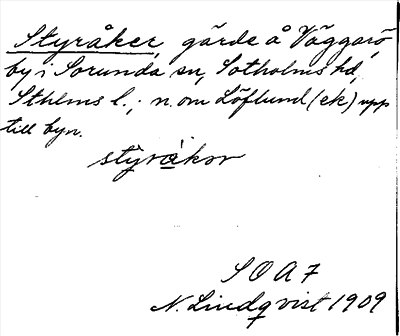 Styråker, gärde å Väggarö,
by i Sorunda sn, Sotholms hd,
Sthlms l.; n. om Löflund (ek) upp
till byn.
styråkor
S O A 7
N. Lindqvist 1909